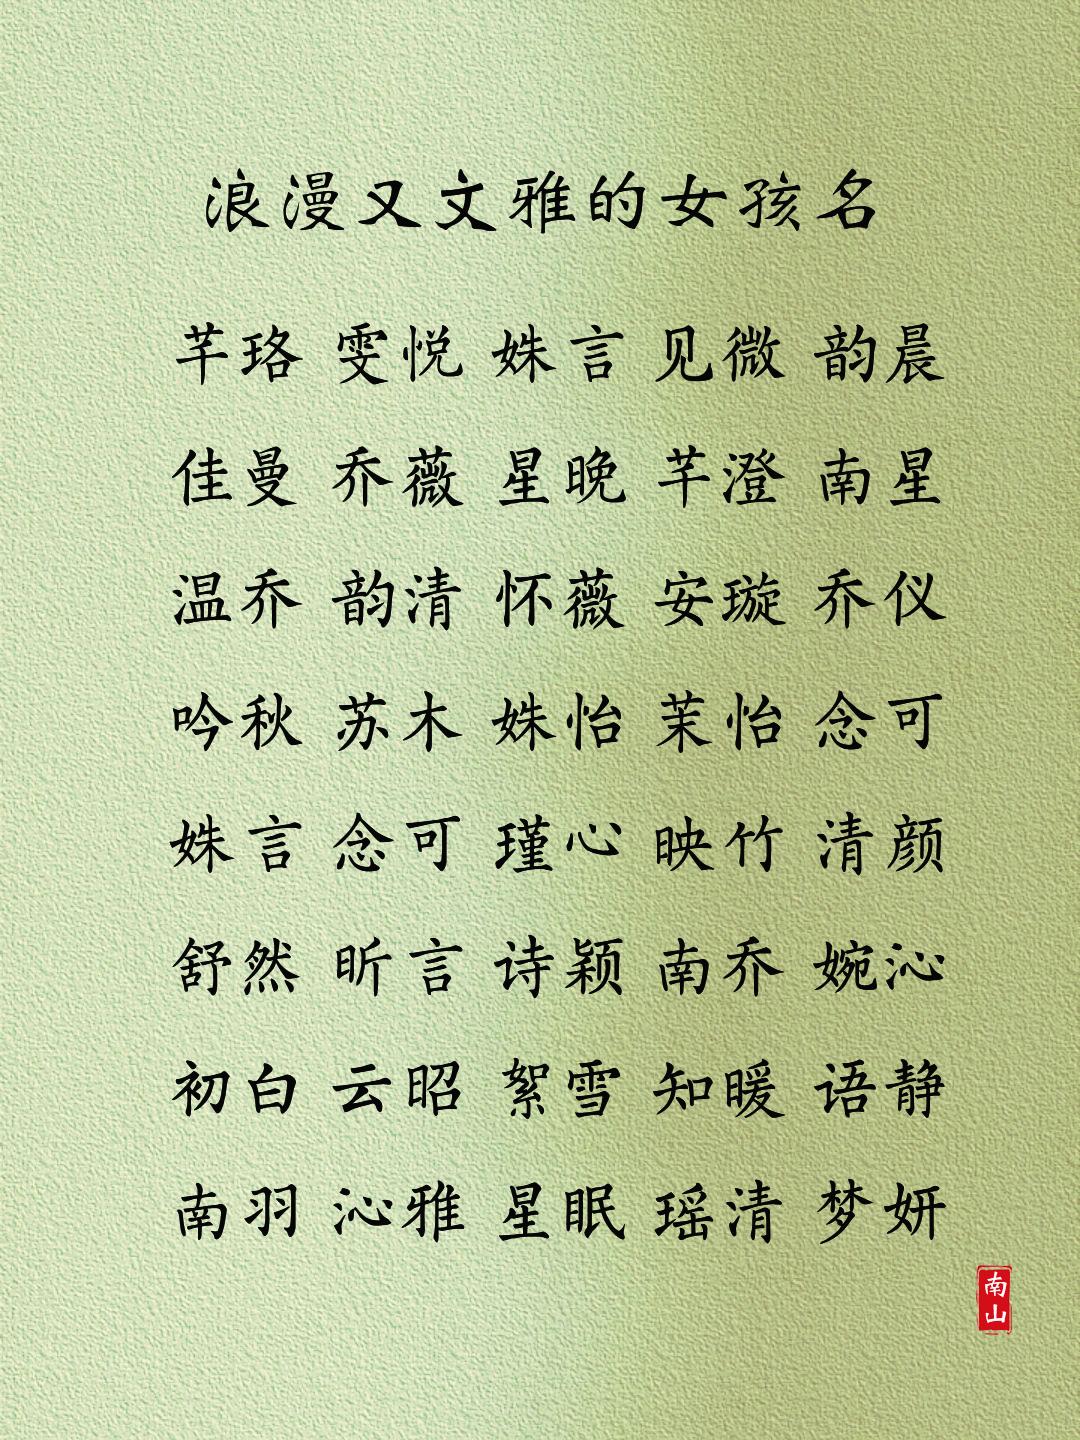 浪漫又文雅的女孩名
芊珞 雯悦 姝言 见微 韵晨
佳曼 乔薇 星晚 芊澄 南星
温乔 韵清 怀薇 安璇 乔仪
吟秋 苏木 姝怡 茉怡 念可
姝言 念可 瑾心 映竹 清颜
舒然 昕言 诗颖 南乔 婉沁
初白 云昭 絮雪 知暖 语静
南羽 沁雅 星眠 瑶清 梦妍
南山